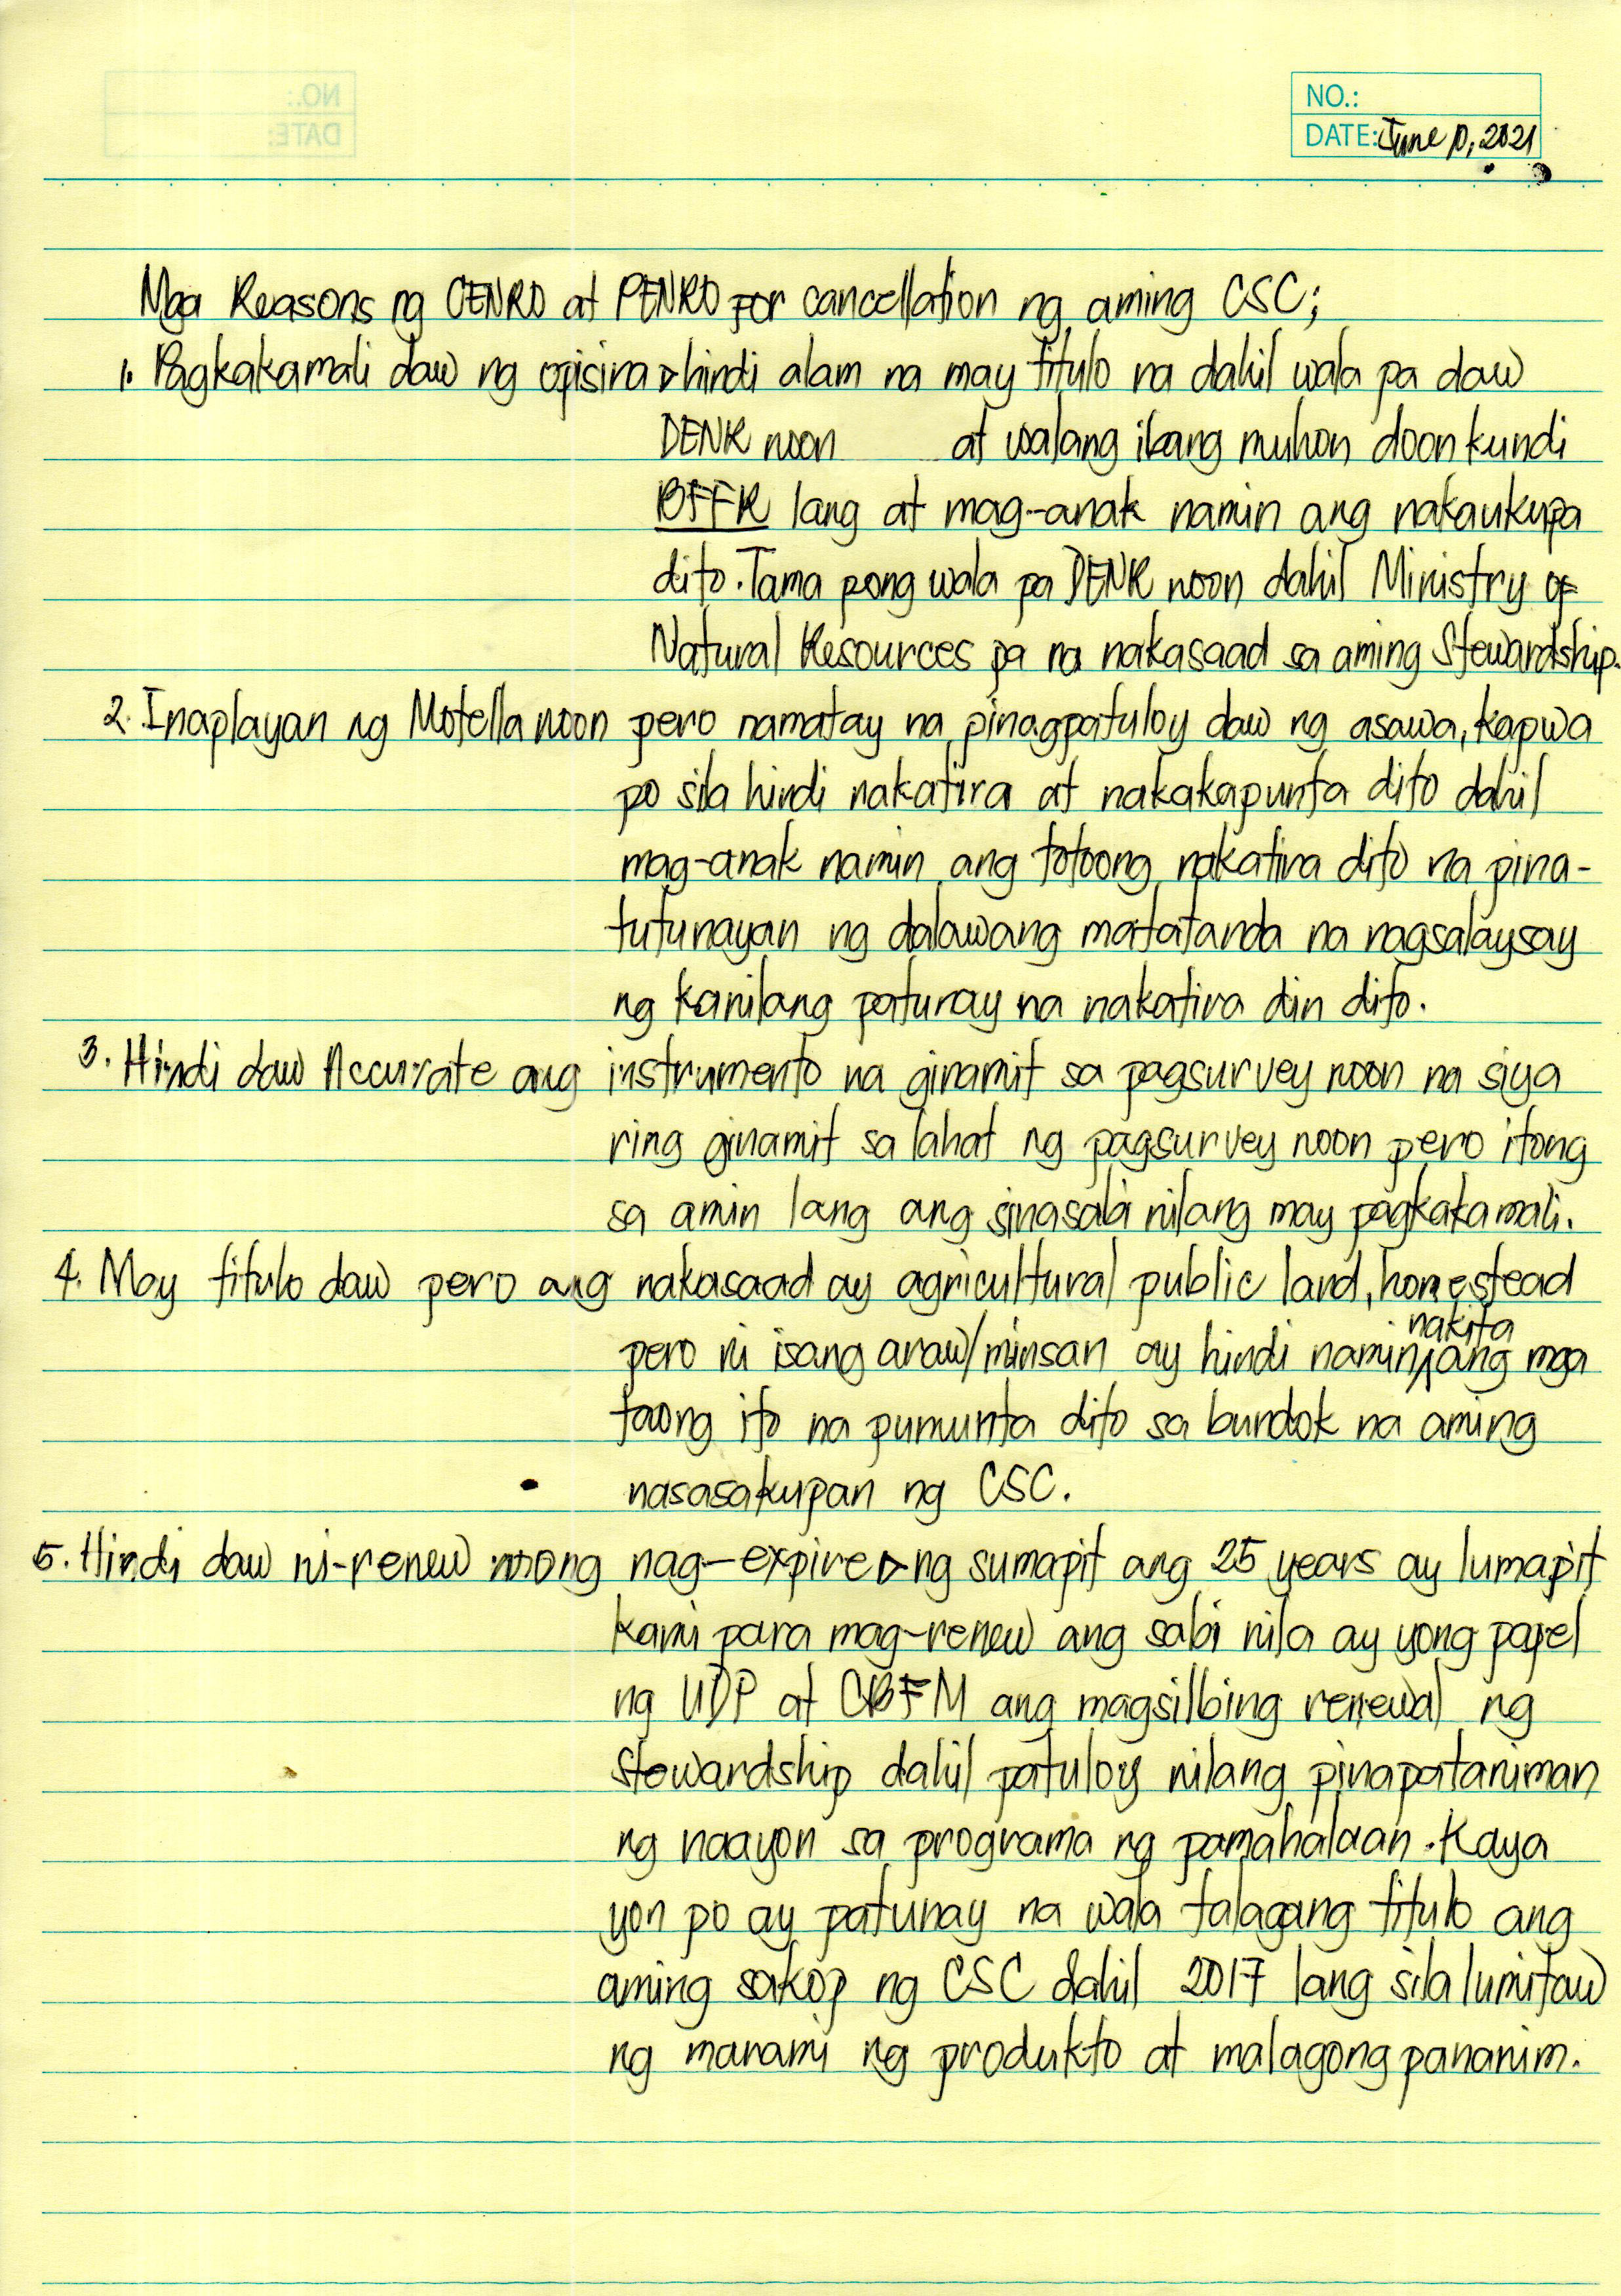 NO.:
DATE: June 10, 2021
Mga Reasons ng CENRO at PENRO For cancellation ng aming CSC;
1. Pagkakamali daw ng opisina ▷ hindi alam na may titulo na dahil wala pa daw
DENR noon at walang ibang muhon doon kundi
BFFR lang at mag-anak namin ang nakaukupa
dito. Tama pong wala pa DENR noon dahil Ministry of
Natural Resources pa na nakasaad sa aming Stewardship.
2. Inaplayan ng Motella noon pero namatay na pinagpatuloy daw ng asawa, kapwa
po sila hindi nakatira at nakakapunta dito dahil
mag-anak namin ang totoong nakatira dito na pina-
tutunayan ng dalawang matatanda na nagsalaysay
ng kanilang patunay na nakatira din dito.
3. Hindi daw Accurate ang instrumento na ginamit sa pagsurvey noon na siya
ring ginamit sa lahat ng pagsurvey noon pero itong
sa amin lang ang sinasabi nilang may pagkakamali.
4. May titulo daw pero ang nakasaad ay agricultural public land, homestead
pero ni isang araw/minsan ay hindi namin nakita ang mga
taong ito na pumunta dito sa bundok na aming
nasasakupan ng CSC.
5. Hindi daw ni-renew noong nag-expire ▷ ng sumapit ang 25 years ay lumapit
kami para mag-renew ang sabi nila ay yong papel
ng UDP at CBFM ang magsilbing renewal ng
Stewardship dahil patuloy nilang pinapataniman
ng naayon sa programa ng pamahalaan. Kaya
yon po ay patunay na wala talagang titulo ang
aming sakop ng CSC dahil 2017 lang sila lumitaw
ng marami ng produkto at malagong pananim.